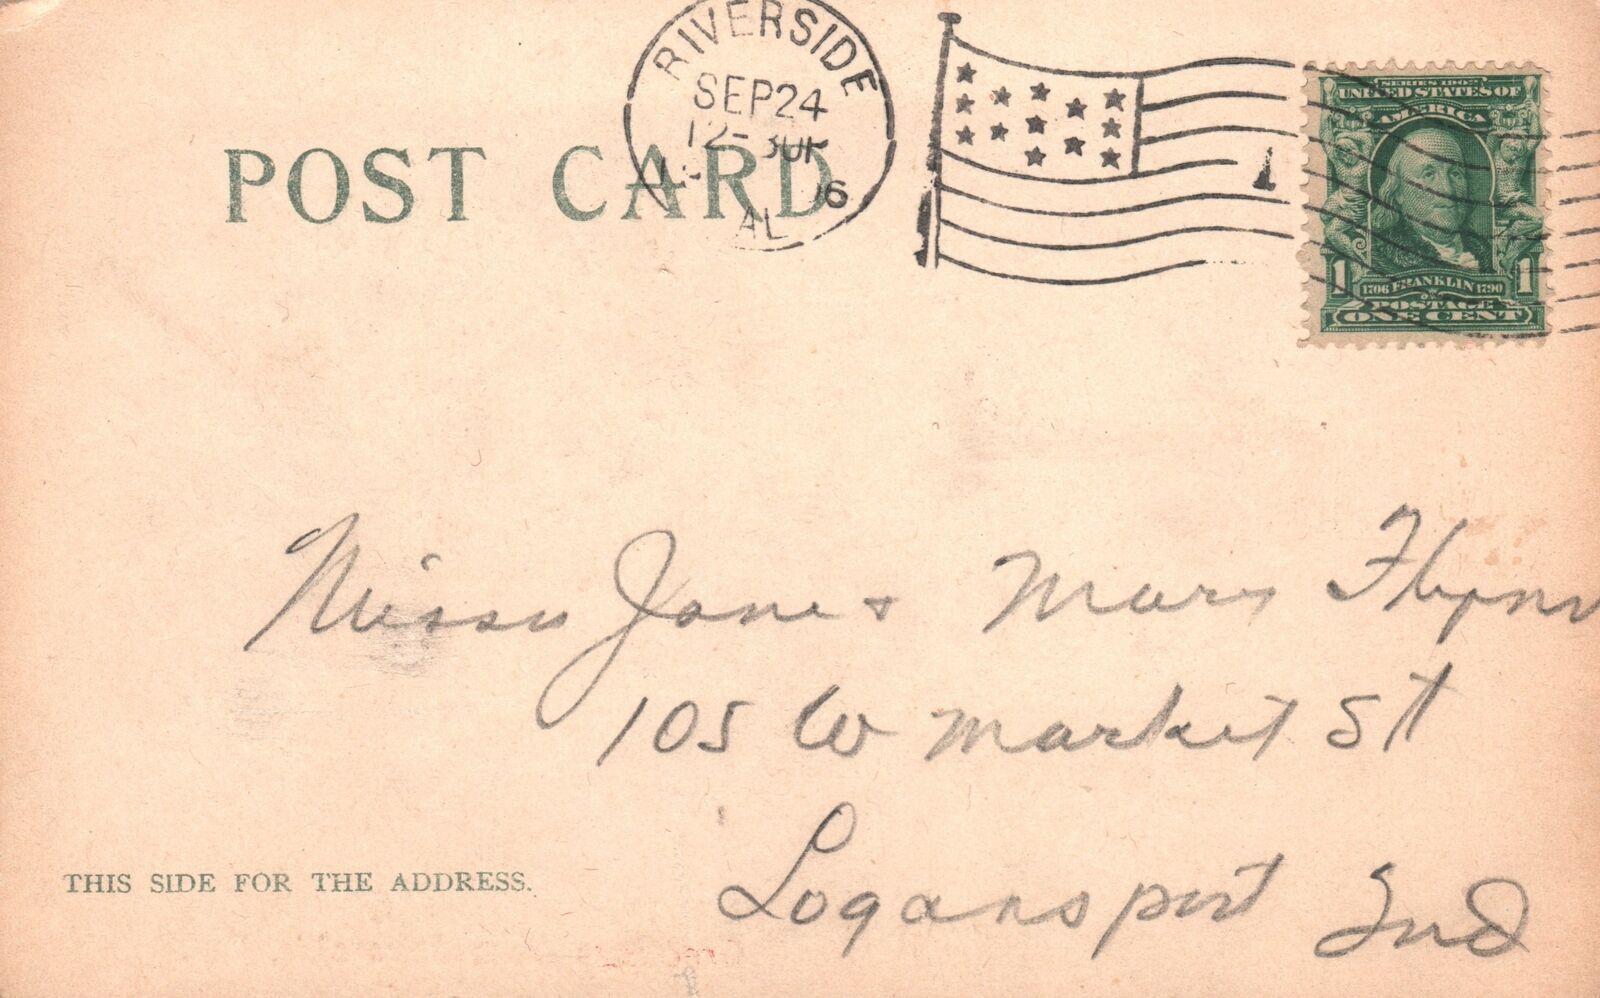 RIVERSIDE
SEP 24
12-30P
06
AL
POST CARD
1
SERIES 1902
UNITED STATES OF
AMERICA
1 1706 FRANKLIN 1790 1
POSTAGE
ONE CENT
Misses Jane & Mary Flynn
105 W Market St
Logansport Ind
THIS SIDE FOR THE ADDRESS.